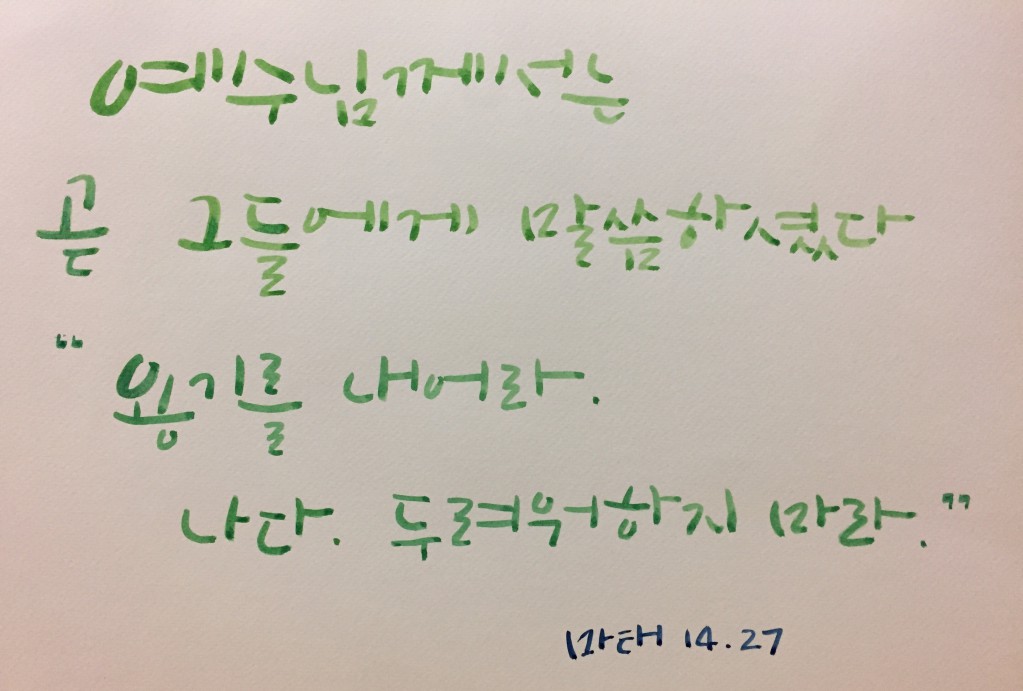 예수님께서는
곧 그들에게 말씀하셨다
“용기를 내어라.
나다. 두려워하지 마라.”
마태 14.27